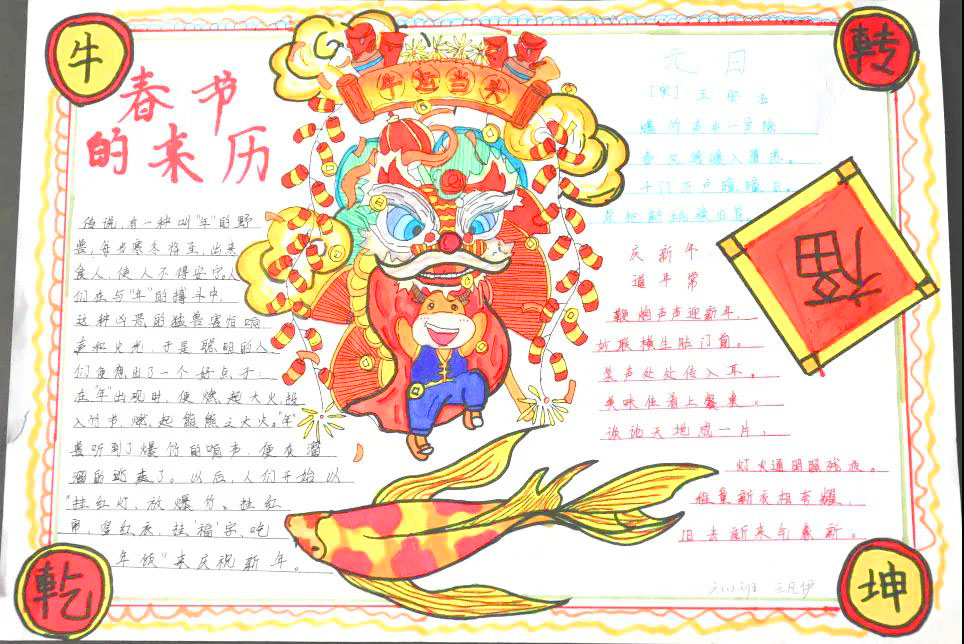 牛
转
乾
坤
牛运当头
春节
的来历
传说,有一种叫"年"的野
兽,每当寒冬将至,出来
食人,使人不得安宁,人
们在与"年"的搏斗中
这种凶恶的猛兽害怕响
声和火光,于是聪明的人
们便想出了一个好点子:
在"年"出现时,便燃起大火,投
入竹节,燃起熊熊之大火。"年"
兽听到了爆竹的响声,便夜溜
溜的逃走了。以后,人们开始以
"挂红灯,放爆竹。挂红
穿红衣,挂'福'字,吃
年饭"来庆祝新年。
元日
[宋] 王安石
爆竹声中一岁除
春风送暖入屠苏。
千门万户曈曈日。
总把新桃换旧符
福
庆新年
道平常
鞭炮声声迎新年,
妙联横生贴门前。
笑声处处传入耳。
美味佳肴上餐桌。
谈论天地成一片,
灯火通明照残夜。
稚童新衣相夸耀,
旧去新来气象新。